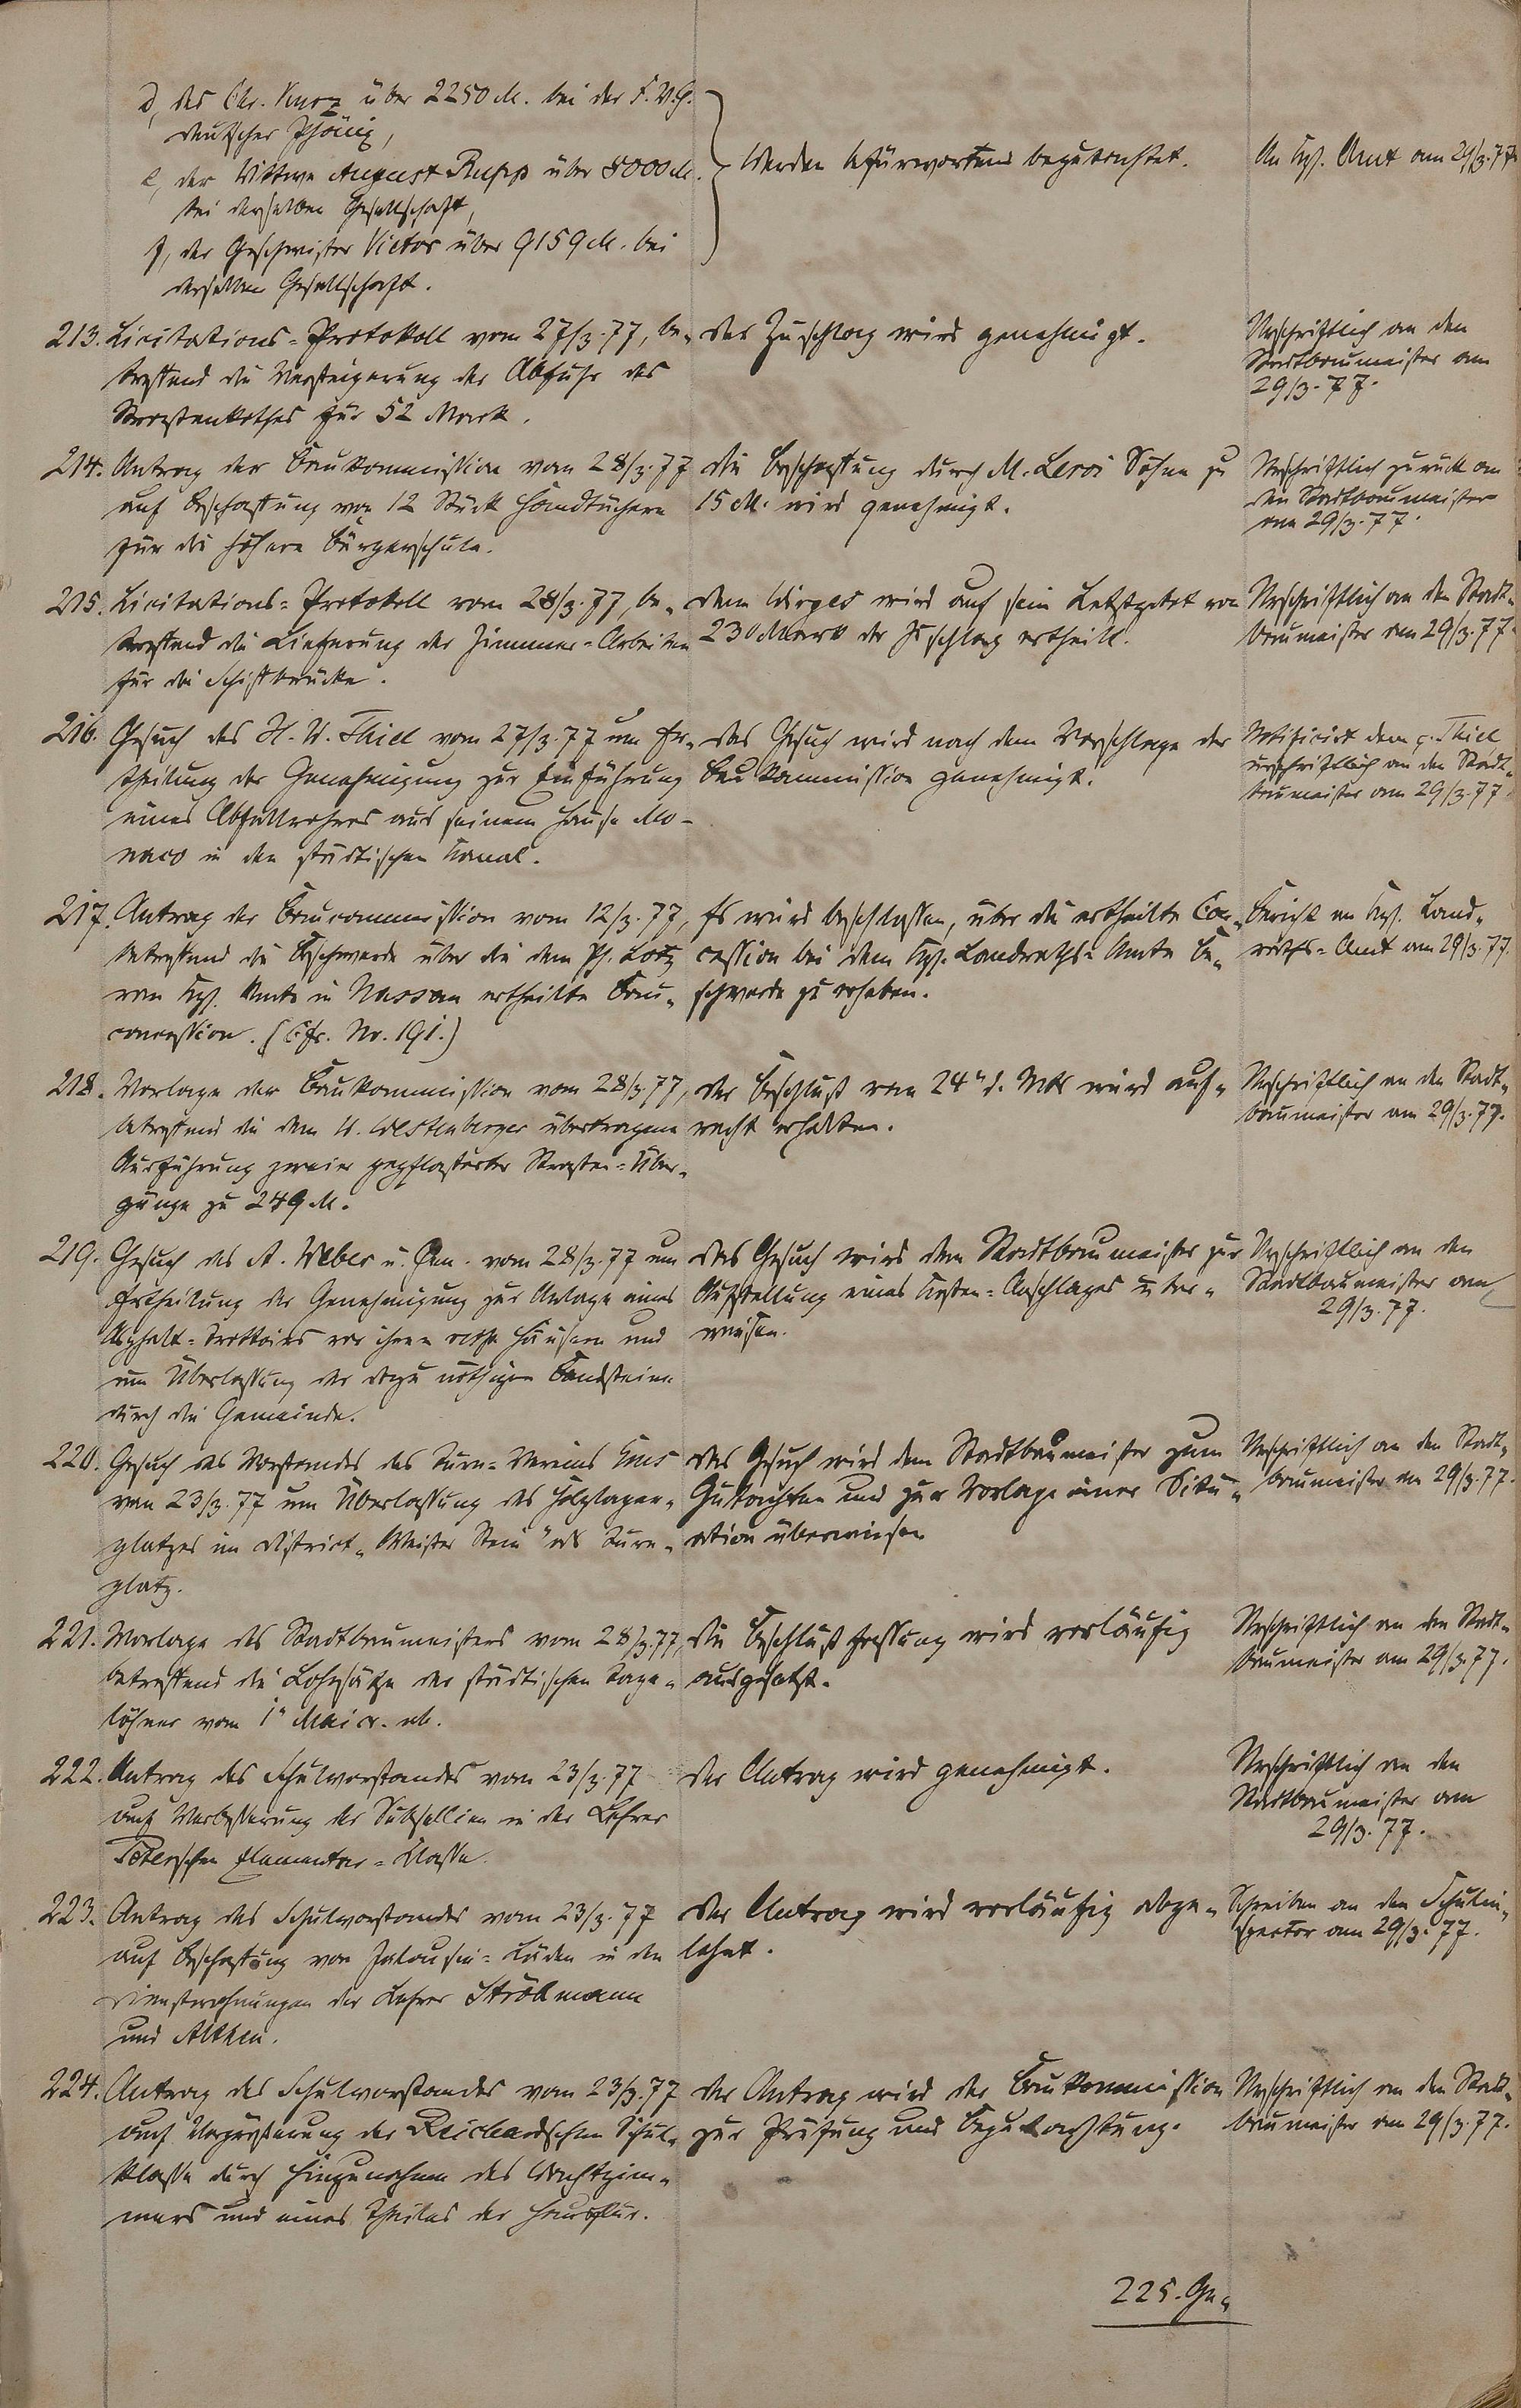 d, des Chr. Kurz über 2250 M. bei der F.V.G.
deutscher Phönix,
e, der Wittwe August Rupp über 8000 M.
bei derselben Gesellschaft,
f, der Geschwister Victor über 9159 M. bei
derselben Gesellschaft.
Werden befürwortend begutachtet.
An Kgl. Amt am 29/3.77.
213. Licitations-Protokoll vom 27/3.77, be-
treffend die Versteigerung der Abfuhr des
Strassenkothes für 52 Mark.
Der Zuschlag wird genehmigt.
Urschriftlich an den
Stadtbaumeister am
29/3.77.
214. Antrag der Baukommission vom 28/3.77
auf Beschaffung von 12 Stück Handtüchern
für die höhere Bürgerschule.
Die Beschaffung durch M. Leroi Söhne zu
15 M. wird genehmigt.
Urschriftlich zurück an
den Stadtbaumeister
am 29/3.77.
215. Licitations-Protokoll vom 28/3.77, be-
treffend die Lieferung der Zimmer-Arbeiten
für die Schiffbrücke.
Dem Wirges wird auf sein Letztgebot von
230 Mark der Zuschlag ertheilt.
Urschriftlich an den Stadt-
baumeister am 29/3.77.
216. Gesuch des H. W. Thiel vom 27/3.77 um Er-
theilung der Genehmigung zur Einführung
eines Abfallrohres aus seinem Hause Mo-
naco in den städtischen Kanal.
Das Gesuch wird nach dem Vorschlage der
Baukommission genehmigt.
Notificirt dem p. Thiel
urschriftlich an den Stadt-
baumeister am 29/3.77
217. Antrag der Baucommission vom 12/3.77,
betreffend die Beschwerde über die dem Ph. Lotz
von Kgl. Amte in Nassau ertheilte Bau-
concession. (Cfr. No. 191.)
Es wird beschlossen, über die ertheilte Con-
cession bei dem Kgl. Landraths-Amte Be-
schwerde zu erheben.
Bericht an Kgl. Land-
raths-Amt am 29/3.77.
218. Vorlage der Baukommission vom 28/3.77,
betreffend die dem W. Westenberger übertragene
Ausführung zweier gepflasterter Strassen-Über-
gänge zu 249 M.
Der Beschluß vom 24" d. Mts wird auf-
recht erhalten.
Urschriftlich an den Stadt-
baumeister am 29/3.77.
219. Gesuch des A. Weber u. Gen. vom 28/3.77 um
Ertheilung der Genehmigung zur Anlage eines
Asphalt-Trottoirs vor ihren resp. Häusern und
um Überlassung der dazu nöthigen Bandsteine
durch die Gemeinde.
Das Gesuch wird dem Stadtbaumeister zur
Aufstellung eines Kosten-Anschlages über-
wiesen.
Urschriftlich an den
Stadtbaumeister am
29/3.77.
220. Gesuch des Vorstandes des Turn-Vereins Ems
vom 23/3.77 um Überlassung des Holzlager-
platzes im District "Weißer Stein" als Turn-
platz.
Das Gesuch wird dem Stadtbaumeister zum
Gutachten und zur Vorlage einer Situ-
ation überwiesen
Urschriftlich an den Stadt-
baumeister am 29/3.77.
221. Vorlage des Stadtbaumeisters vom 28/3.77,
betreffend die Lohnsätze der städtischen Tage-
löhner vom 1" Mai cr. ab.
Die Beschlußfassung wird vorläufig
ausgesetzt.
Urschriftlich an den Stadt-
baumeister am 29/3.77.
222. Antrag des Schulvorstandes vom 23/3.77
auf Verbesserung der Subsellien in der Lehrer
Elementar-Klasse.
Der Antrag wird genehmigt.
Urschriftlich an den
Stadtbaumeister am
29/3.77.
223. Antrag des Schulvorstandes vom 23/3.77
auf Beschaffung von Jalousie-Läden in den
Dienstwohnungen der Lehrer Ströhmann
und Althen.
Der Antrag wird vorläufig abge-
lehnt.
Schreiben an den Schulin-
spector am 29/3.77.
224. Antrag des Schulvorstandes vom 23/3.77
auf Vergrößerung der Reichardschen Schul-
klasse durch Hinzunahme des Wachtzim-
mers und eines Theiles der Hausflur.
Der Antrag wird der Baukommission
zur Prüfung und Begutachtung.
Urschriftlich an den Stadt-
baumeister am 29/3.77.
225. Ge-